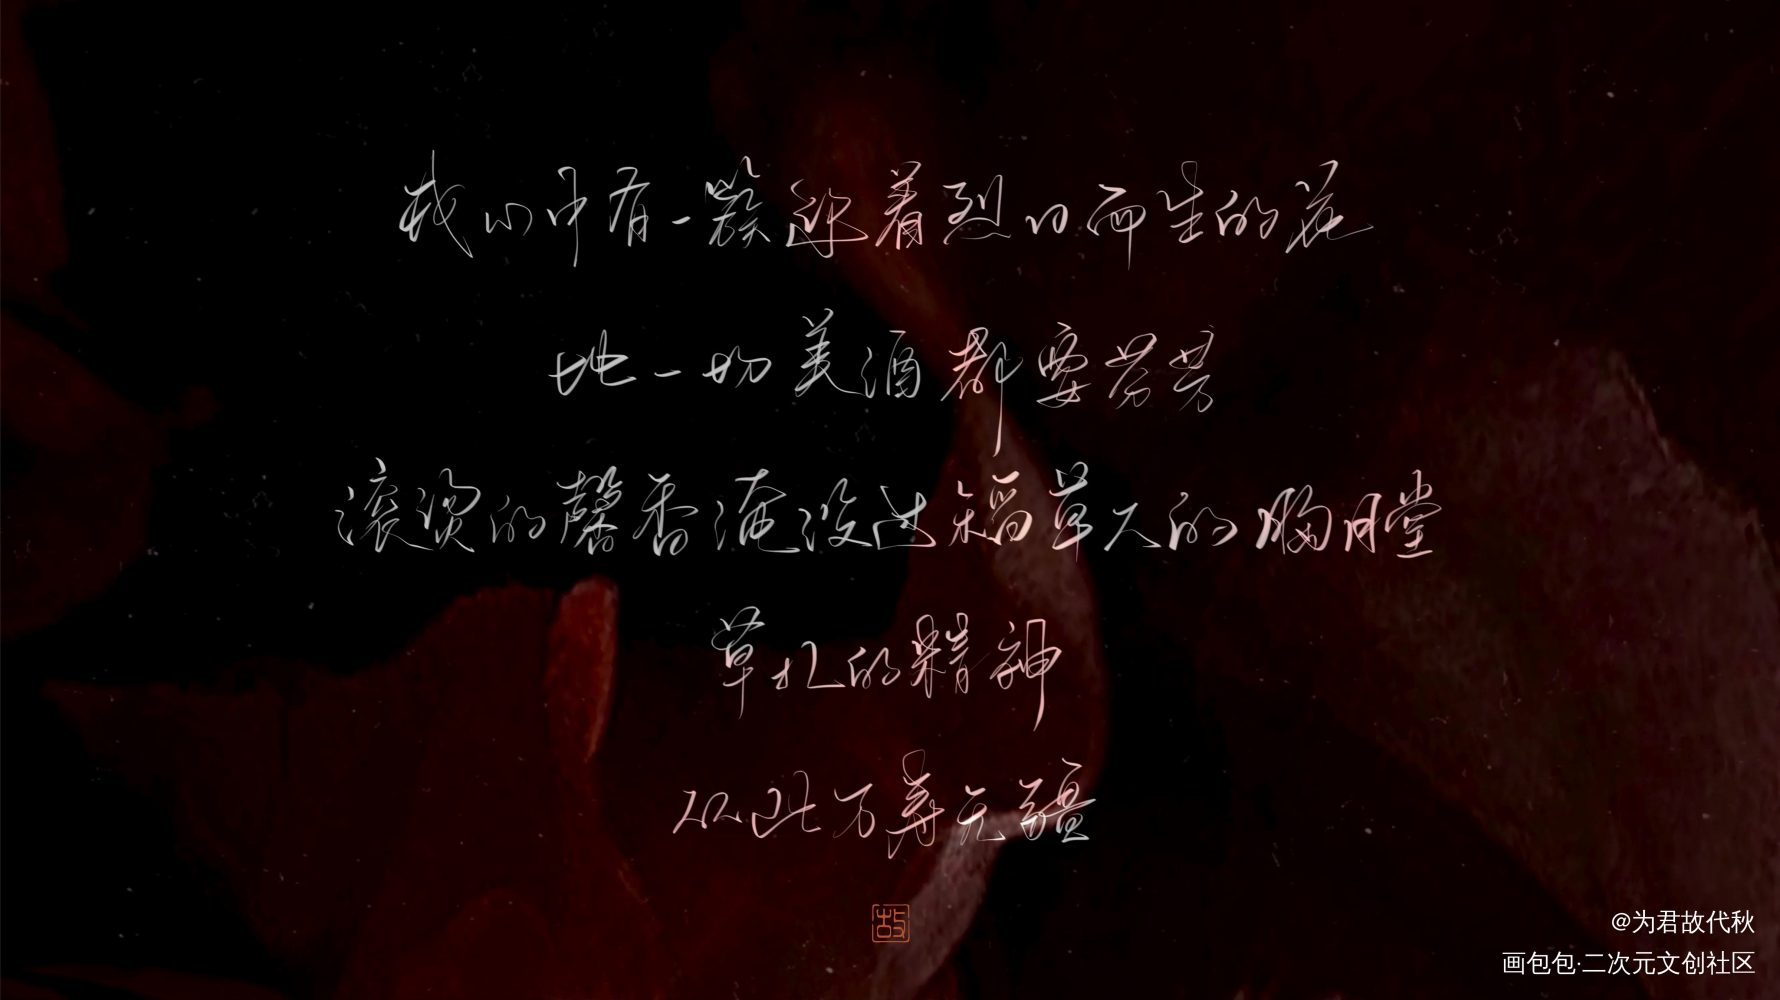 我心中有一簇迎着烈日而生的花
比一切美酒都要芬芳
滚烫的馨香淹没过稻草人的胸膛
草扎的精神
从此万寿无疆
故
@为君故代秋
画包包·二次元文创社区